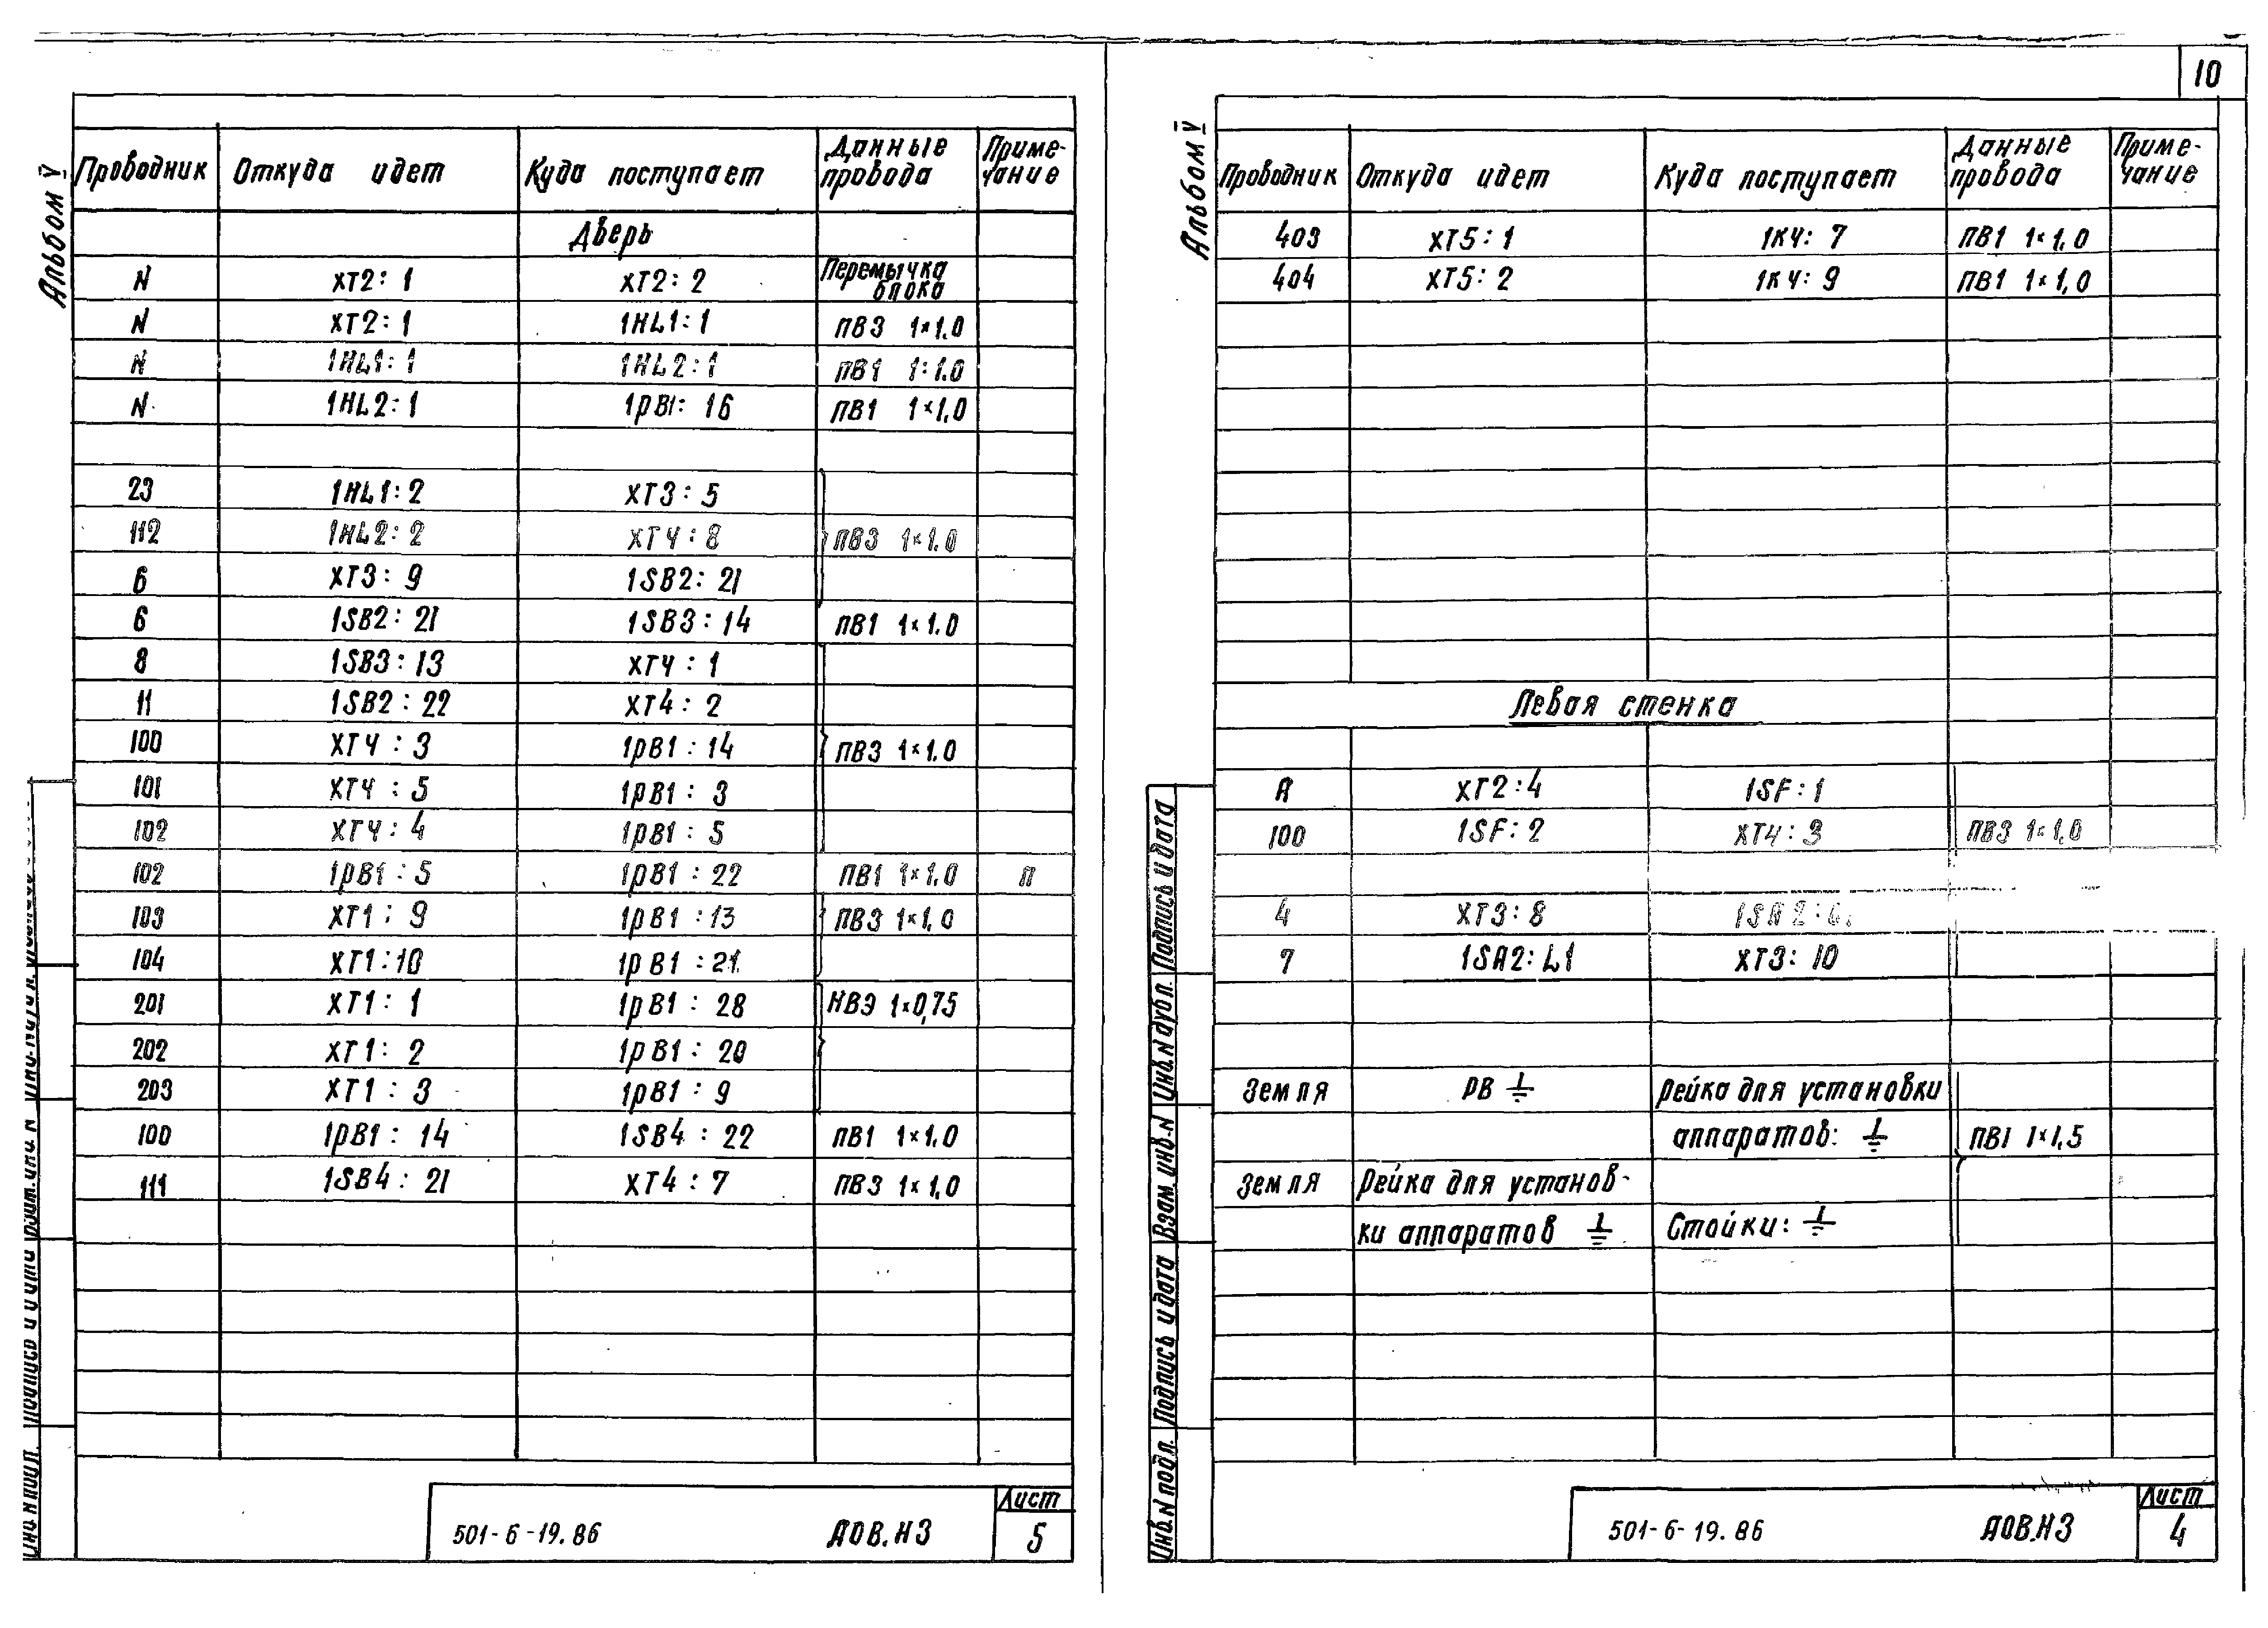 10
Альбом V
Проводник Откуда идет Куда поступает Данные провода Примечание
Дверь
N ХТ2: 1 ХТ2: 2 Перемычка блока
N ХТ2: 1 1HL1: 1 ПВ3 1×1.0
N 1HL1: 1 1HL2: 1 ПВ1 1×1.0
N 1HL2: 1 1РВ1: 16 ПВ1 1×1.0
23 1HL1: 2 ХТ3: 5
112 1HL2: 2 ХТ4: 8 ПВ3 1×1.0
6 ХТ3: 9 1SB2: 21
6 1SB2: 21 1SB3: 14 ПВ1 1×1.0
8 1SB3: 13 ХТ4: 1
11 1SB2: 22 ХТ4: 2
100 ХТ4: 3 1РВ1: 14 ПВ3 1×1.0
101 ХТ4: 5 1РВ1: 3
102 ХТ4: 4 1РВ1: 5
102 1РВ1: 5 1РВ1: 22 ПВ1 1×1.0 П
103 ХТ1: 9 1РВ1: 13 ПВ3 1×1.0
104 ХТ1: 10 1РВ1: 21
201 ХТ1: 1 1РВ1: 28 НВЭ 1×0,75
202 ХТ1: 2 1РВ1: 20
203 ХТ1: 3 1РВ1: 9
100 1РВ1: 14 1SB4: 22 ПВ1 1×1.0
111 1SB4: 21 ХТ4: 7 ПВ3 1×1,0
501-6-19.86 АОВ.НЗ Лист 5
Альбом V
Проводник Откуда идет Куда поступает Данные провода Примечание
403 ХТ5: 1 1К4: 7 ПВ1 1×1,0
404 ХТ5: 2 1К4: 9 ПВ1 1×1,0
Левая стенка
А ХТ2: 4 1SF: 1
100 1SF: 2 ХТ4: 3 ПВ3 1×1,0
4 ХТ3: 8 1SA2:
7 1SA2: L1 ХТ3: 10
Земля РВ ⏚ Рейка для установки
аппаратов: ⏚ ПВ1 1×1,5
Земля Рейка для установ-
ки аппаратов ⏚ Стойки: ⏚
Инв.N подл. Подпись и дата Взам. инв.N Инв.N дубл. Подпись и дата
501-6-19.86 АОВ.НЗ Лист 4